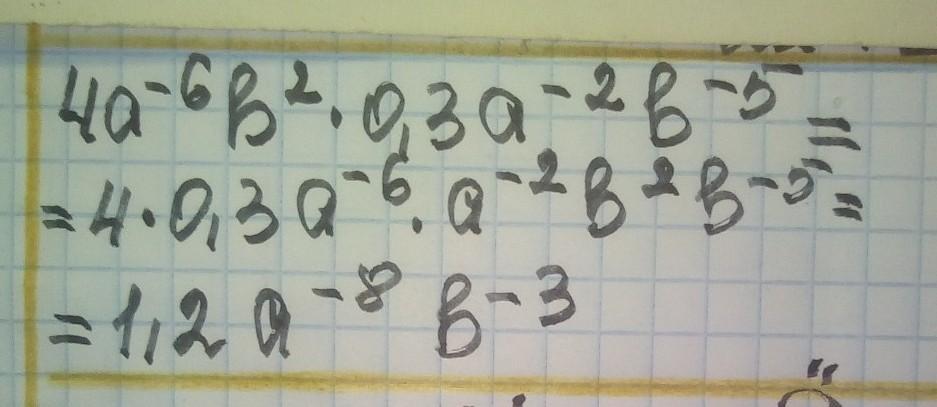 4a⁻⁶b² · 0,3a⁻²b⁻⁵ =
= 4 · 0,3a⁻⁶ · a⁻²b²b⁻⁵ =
= 1,2 a⁻⁸ b⁻³